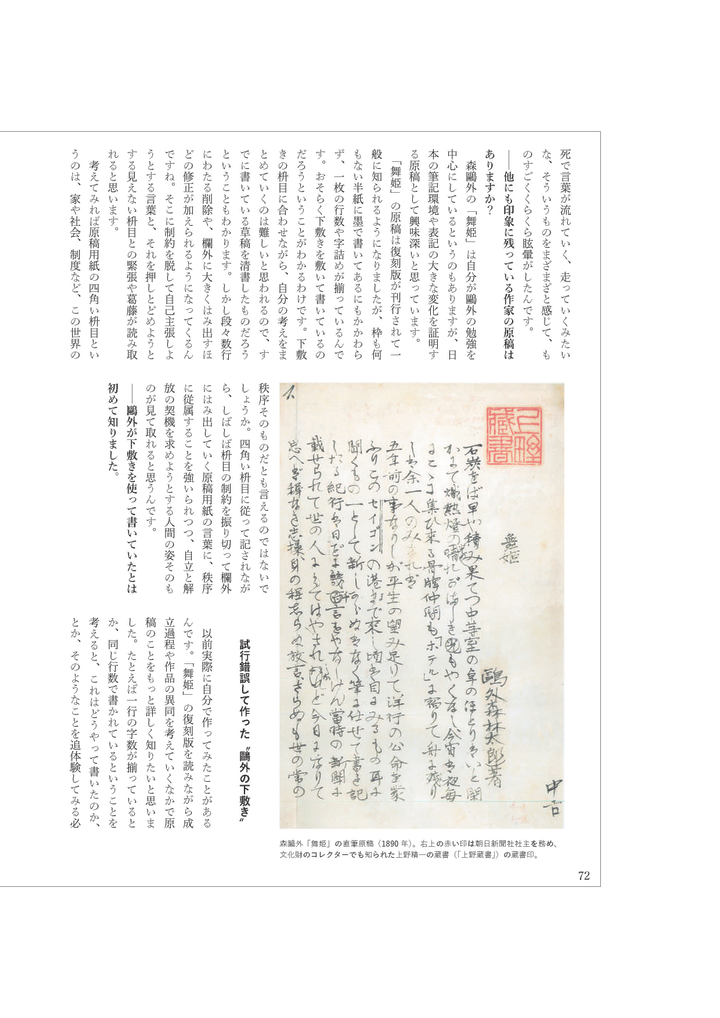 死で言葉が流れていく、走っていくみたい
な、そういうものをまざまざと感じて、も
のすごくくらくら眩暈がしたんです。
――他にも印象に残っている作家の原稿は
ありますか？
　森鷗外の「舞姫」は自分が鷗外の勉強を
中心にしているというのもありますが、日
本の筆記環境や表記の大きな変化を証明す
る原稿として興味深いと思っています。
　「舞姫」の原稿は復刻版が刊行されて一
般に知られるようになりましたが、枠も何
もない半紙に墨で書いてあるにもかかわら
ず、一枚の行数や字詰めが揃っているんで
す。おそらく下敷きを敷いて書いているの
だろうということがわかるわけです。下敷
きの枡目に合わせながら、自分の考えをま
とめていくのは難しいと思われるので、す
でに書いている草稿を清書したものだろう
ということもわかります。しかし段々数行
にわたる削除や、欄外に大きくはみ出すほ
どの修正が加えられるようになってくるん
ですね。そこに制約を脱して自己主張しよ
うとする言葉と、それを押しとどめようと
する見えない枡目との緊張や葛藤が読み取
れると思います。
　考えてみれば原稿用紙の四角い枡目とい
うのは、家や社会、制度など、この世界の
秩序そのものだとも言えるのではないで
しょうか。四角い枡目に従って記されなが
ら、しばしば枡目の制約を振り切って欄外
にはみ出していく原稿用紙の言葉に、秩序
に従属することを強いられつつ、自立と解
放の契機を求めようとする人間の姿そのも
のが見て取れると思うんです。
――鷗外が下敷きを使って書いていたとは
初めて知りました。
舞姫
鷗外森林太郎著
石炭をば早や積み果てつ中等室の卓のほとりはいと閑
かにて熾熱燈の晴れがましきもやくなし今宵は夜毎
にこゝに集ひ来る骨牌仲間も「ホテル」に宿りて舟に残り
しは余一人のみなれば
五年前の事なりしが平生の望み足りて洋行の官命を蒙
ふりこのセイゴンの港まで来し頃は目にみるもの耳に
聞くもの一として新しからぬはなく筆に任せて書き記
したる紀行文日ごとに幾千言をかなしけん当時の新聞に
載せられて世の人にもてはやされしかど今日になりて
思へば穉なき思想身の程しらぬ放言さらぬも世の常の
森鷗外「舞姫」の直筆原稿（1890年）。右上の赤い印は朝日新聞社社主を務め、
文化財のコレクターでも知られた上野精一の蔵書（「上野蔵書」）の蔵書印。
試行錯誤して作った〝鷗外の下敷き〟
　以前実際に自分で作ってみたことがある
んです。「舞姫」の復刻版を読みながら成
立過程や作品の異同を考えていくなかで原
稿のことをもっと詳しく知りたいと思いま
した。たとえば一行の字数が揃っていると
か、同じ行数で書かれているということを
考えると、これはどうやって書いたのか、
とか、そのようなことを追体験してみる必
72